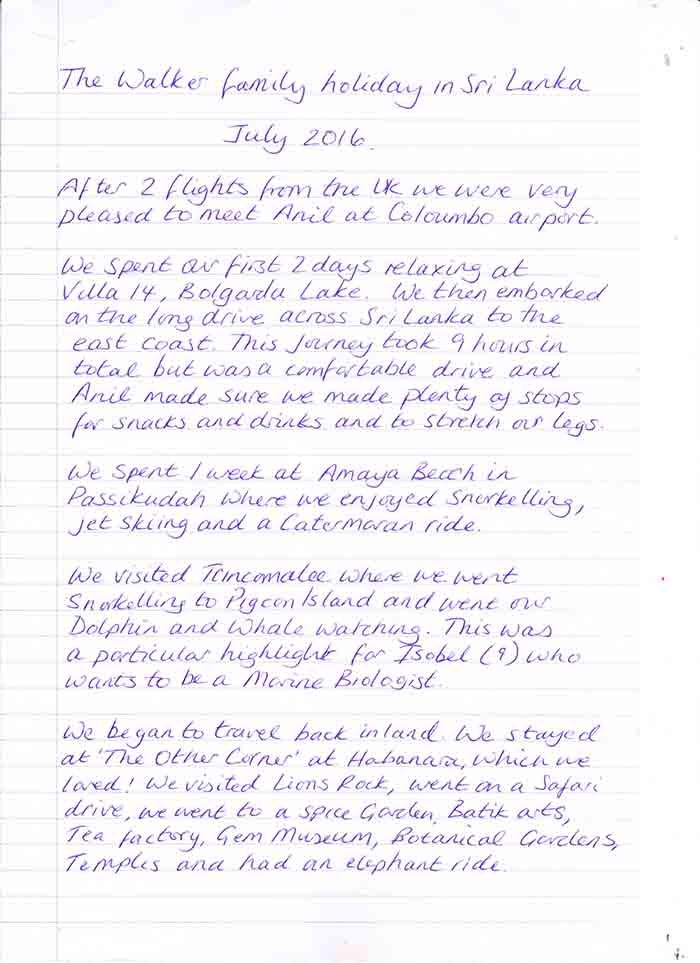 The Walker family holiday in Sri Lanka
July 2016.
After 2 flights from the UK we were very
pleased to meet Anil at Coloumbo airport.
We spent our first 2 days relaxing at
Villa 14, Bolgarda Lake. We then embarked
on the long drive across Sri Lanka to the
east coast. This journey took 9 hours in
total but was a comfortable drive and
Anil made sure we made plenty of stops
for snacks and drinks and to stretch our legs.
We spent 1 week at Amaya Beach in
Passikudah where we enjoyed Snorkelling,
jet skiing and a Catermaran ride.
We visited Trincomalee where we went
Snorkelling to Pigeon Island and went our
Dolphin and Whale watching. This was
a particular highlight for Isobel (9) who
wants to be a Marine Biologist.
We began to travel back inland. We stayed
at 'The Other Corner' at Habanara, which we
loved! We visited Lions Rock, went on a Safari
drive, we went to a spice Garden, Batik arts,
Tea factory, Gem Museum, Botanical Gardens,
Temples and had an elephant ride.